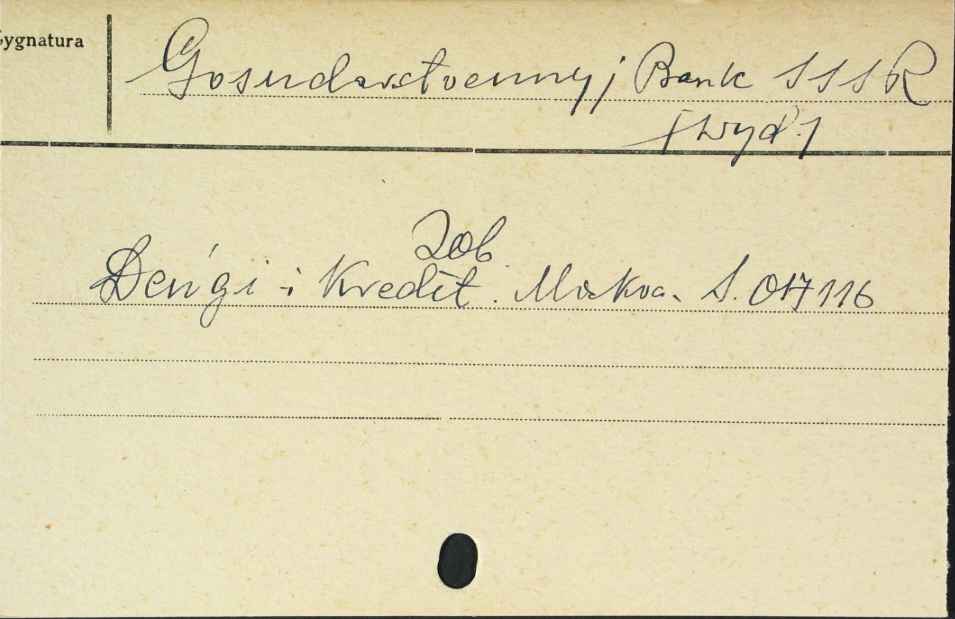 Sygnatura
Gosudarstvennyj Bank SSSR
[wyd.]
Zob.
Den'gi i Kredit. Moskva. S. 017116